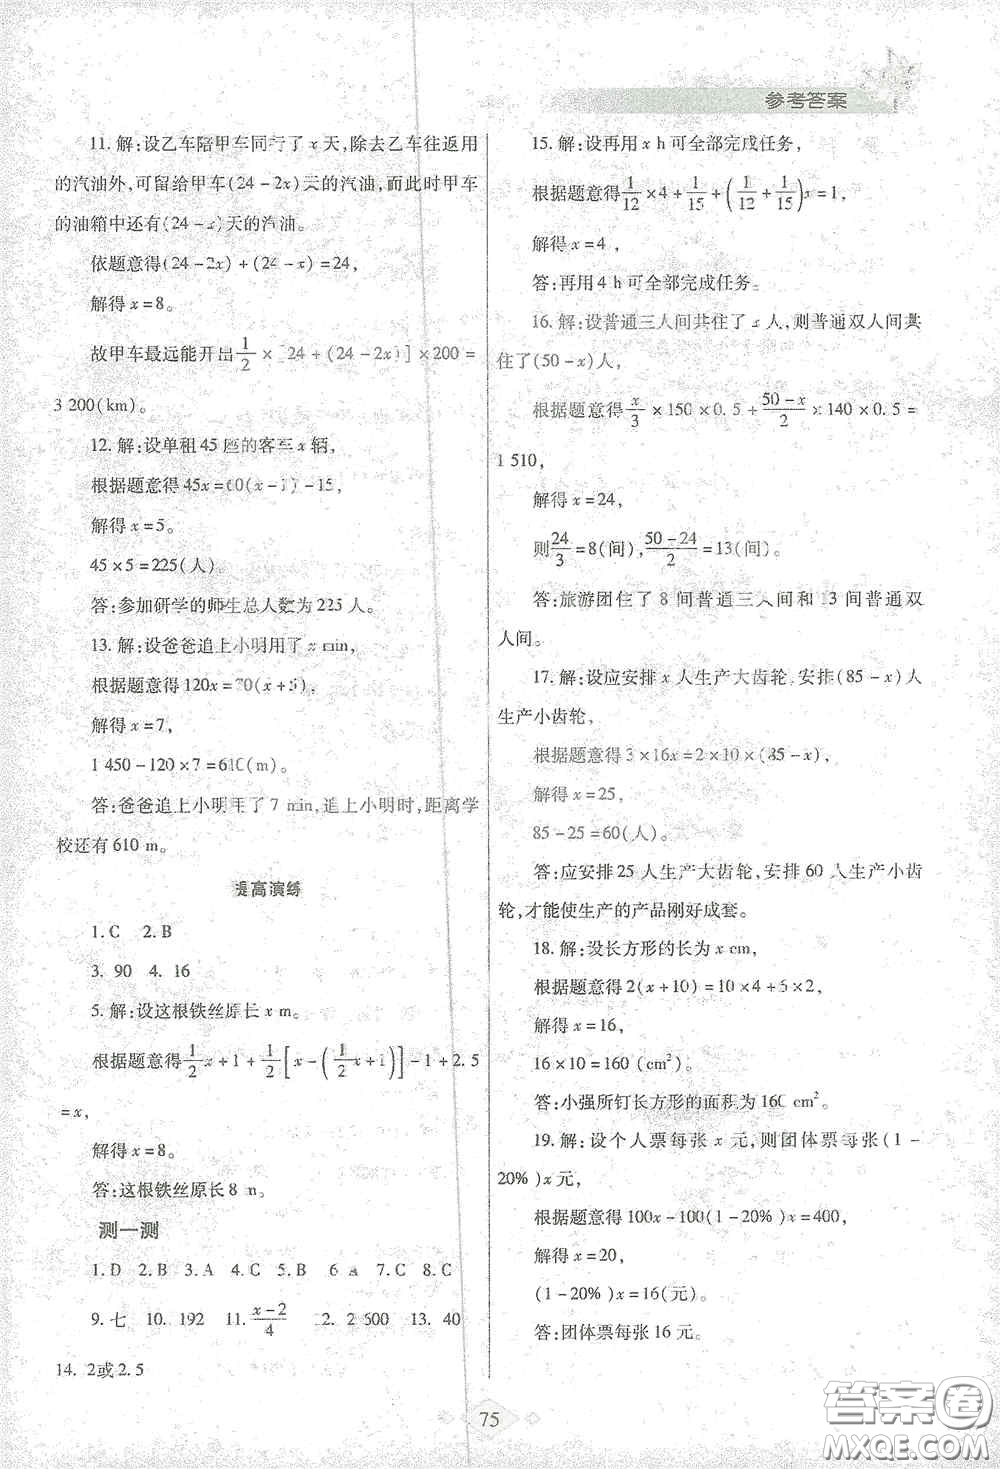 参考答案
11. 解:设乙车陪甲车同行了 x 天,除去乙车往返用
的汽油外,可留给甲车(24-2x)天的汽油,而此时甲车
的油箱中还有(24-x)天的汽油。
依题意得(24-2x)+(24-x)=24,
解得 x=8。
故甲车最远能开出1/2×[24+(24-2x)]×200=
3 200(km)。
12. 解:设单租 45 座的客车 x 辆,
根据题意得 45x=60(x-1)-15,
解得 x=5。
45×5=225(人)。
答:参加研学的师生总人数为 225 人。
13. 解:设爸爸追上小明用了 x min,
根据题意得 120x=70(x+5),
解得 x=7,
1 450-120×7=610(m)。
答:爸爸追上小明用了 7 min,追上小明时,距离学
校还有 610 m。
提高演练
1. C 2. B
3. 90 4. 16
5. 解:设这根铁丝原长 x m。
根据题意得1/2x+1+1/2[x-(1/2x+1)]-1+2.5
=x,
解得 x=8。
答:这根铁丝原长 8 m。
测一测
1. D 2. B 3. A 4. C 5. B 6. A 7. C 8. C
9. 七 10. 192 11. (x-2)/4 12. 2 500 13. 40
14. 2或2.5
15. 解:设再用 x h 可全部完成任务,
根据题意得1/12×4+1/15+(1/12+1/15)x=1,
解得 x=4,
答:再用 4 h 可全部完成任务。
16. 解:设普通三人间共住了 x 人,则普通双人间共
住了(50-x)人,
根据题意得x/3×150×0.5+(50-x)/2×140×0.5=
1 510,
解得 x=24,
则24/3=8(间),(50-24)/2=13(间)。
答:旅游团住了 8 间普通三人间和 13 间普通双
人间。
17. 解:设应安排 x 人生产大齿轮,安排(85-x)人
生产小齿轮,
根据题意得 3×16x=2×10×(85-x),
解得 x=25,
85-25=60(人)。
答:应安排 25 人生产大齿轮,安排 60 人生产小齿
轮,才能使生产的产品刚好成套。
18. 解:设长方形的长为 x cm,
根据题意得 2(x+10)=10×4+6×2,
解得 x=16,
16×10=160(cm²)。
答:小强所钉长方形的面积为 160 cm²。
19. 解:设个人票每张 x 元,则团体票每张(1-
20%)x 元,
根据题意得 100x-100(1-20%)x=400,
解得 x=20,
(1-20%)x=16(元)。
答:团体票每张 16 元。
75
答案圈
MXQE.COM